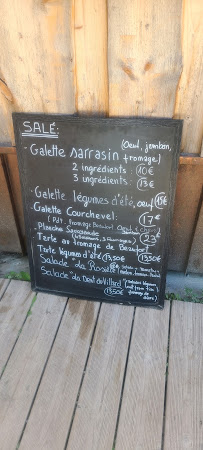 SALÉ:
- Galette sarrasin (Oeuf, jambon, fromage)
2 ingrédients 10€
3 ingrédients 13€
- Galette légumes d'été, oeuf 15€
- Galette Courchevel: 17€
(Pdt, fromage Beaufort, Oeuf
- Planche Savoyarde 23€
- Tarte au fromage de Beaufort 13,50€
- Tarte légumes d'été 13,50€
- Salade "La Rosière"
- Salade "La Dent du Villard"
13,50€